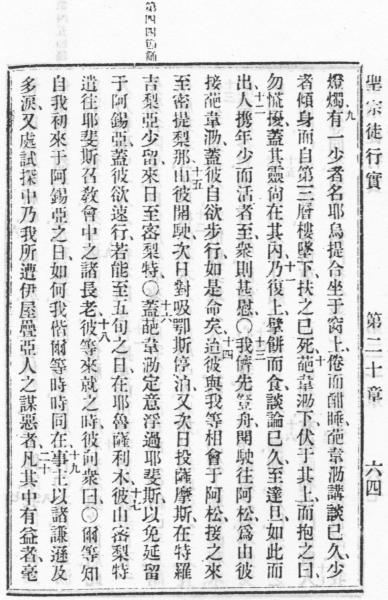 聖宗徒行實 第二十章 六四
燈燭九有一少者名耶烏提合坐于窻上倦而酣睡葩韋泐講談已久少
者傾身而自第三層樓墜下扶之已死十葩韋泐下伏于其上而抱之曰
勿慌擾蓋其靈尙在其內十一乃復上擘餅而食談論已久至達旦如此而
出十二人携年少而活者至衆則甚慰○十三我儕先登舟開駛往阿松爲由彼
接葩韋泐蓋彼自欲步行如是命矣十四迨彼與我等相會于阿松接之來
至密提梨那十五由彼開駛次日對吸鄂斯停泊又次日投薩摩斯在特羅
吉梨亞少留來日至密梨特○十六蓋葩韋泐定意浮過耶斐斯以免延留
于阿錫亞蓋彼欲速行若能至五旬之日在耶魯薩利木十七彼由密梨特
遣往耶斐斯召敎會中之諸長老十八彼等來就之時彼向衆曰○爾等知
自我初來于阿錫亞之日如何我偕爾等時時同在十九事主以諸謙遜及
多淚又處試探中乃我所遭伊屋疊亞人之謀惡者二十凡其中有益者毫